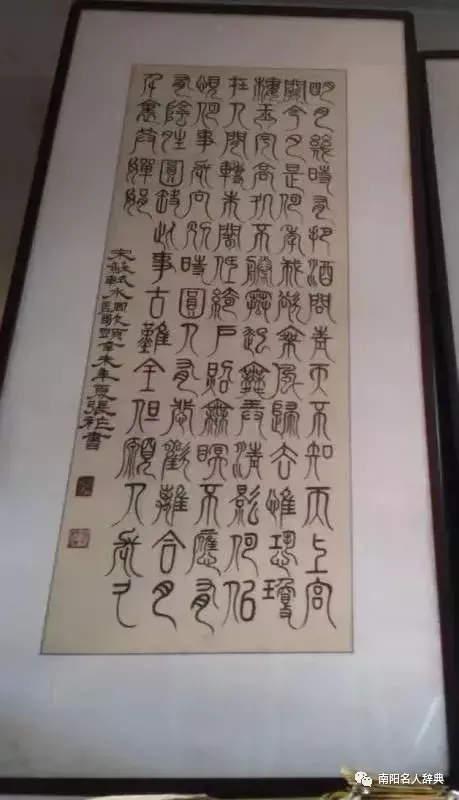 明月幾時有把酒問青天不知天上宮
闕今夕是何年我欲乘風歸去惟恐瓊
樓玉宇高處不勝寒起舞弄清影何似
在人間轉朱閣低綺戶照無眠不應有
恨何事長向別時圓人有悲歡離合月
有陰晴圓缺此事古難全但願人長久
千里共嬋娟
宋蘇軾水調歌頭辛未年夏張書
南阳名人辞典